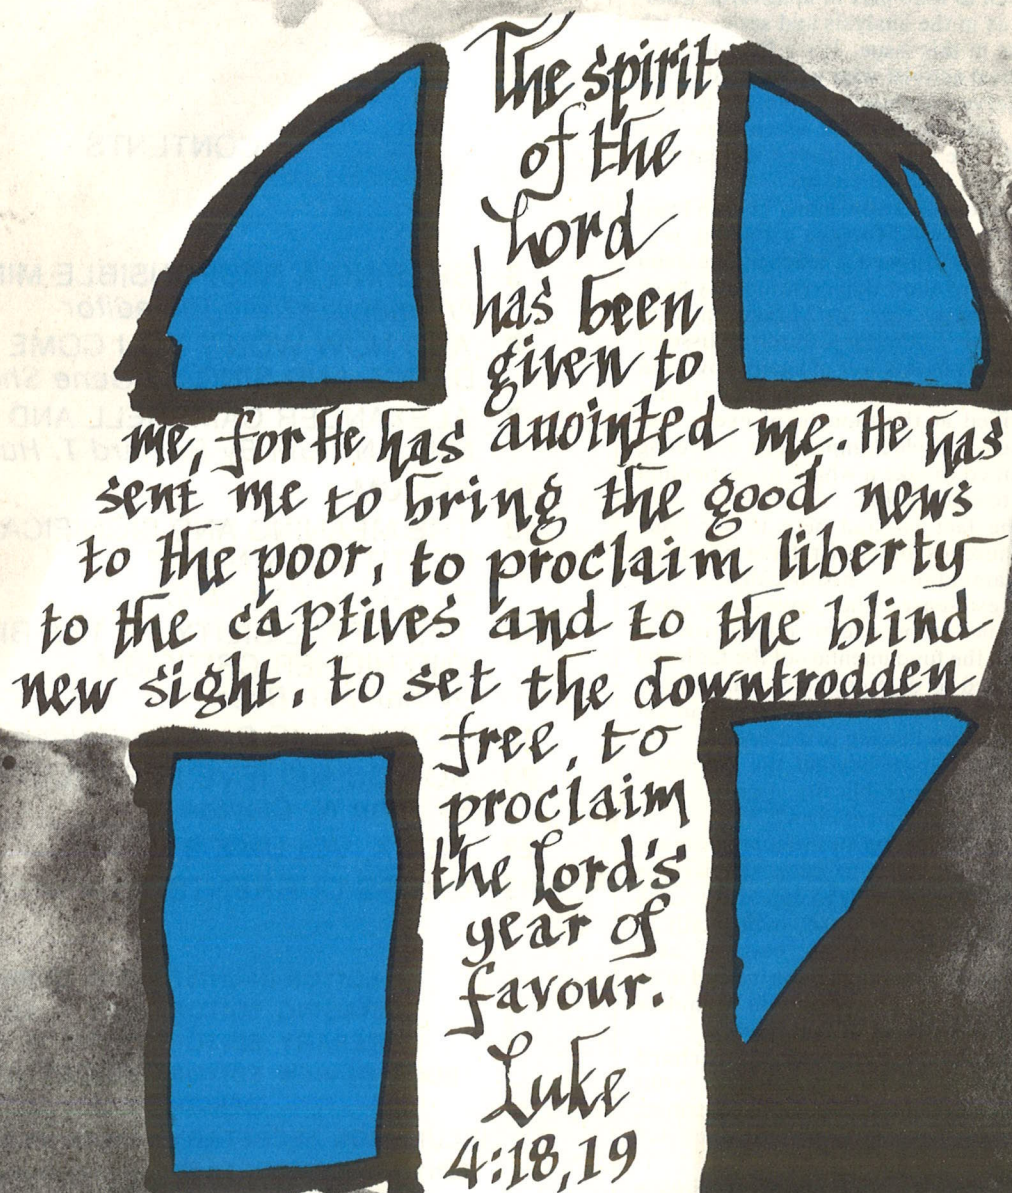 The spirit
of the
Lord
has been
given to
me, for He has anointed me. He has
sent me to bring the good news
to the poor, to proclaim liberty
to the captives and to the blind
new sight, to set the downtrodden
free, to
proclaim
the Lord's
year of
favour.
Luke
4:18,19